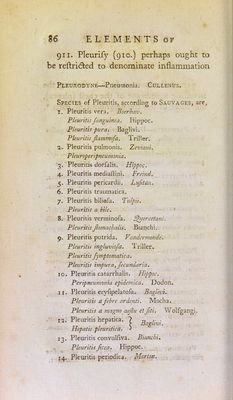 86 ELEMENTS OF
911. Pleurisy (910.) perhaps ought to
be restricted to denominate inflammation
PLEURODYNE—Pneumonia. CULLENUS.
SPECIES of Pleuritis, according to SAUVAGES, are,
1. Pleuritis vera. Boerhav.
Pleuritis sanguinea. Hippoc.
Pleuritis pura. Baglivi.
Pleuritis flammosa. Triller.
2. Pleuritis pulmonis. Zeviani.
Pleuroperipneumonia.
3. Pleuritis dorsalis. Hippoc.
4. Pleuritis mediastini. Freind.
5. Pleuritis pericardii. Lusitan.
6. Pleuritis traumatica.
7. Pleuritis biliosa. Tulpii.
Pleuritis a bile.
8. Pleuritis verminosa. Quercetani.
Pleuritis stomachalis. Bianchi.
9. Pleuritis putrida. Vandermonde.
Pleuritis ingluviosa. Triller.
Pleuritis symptomatica.
Pleuritis impura, secundaria.
10. Pleuritis catarrhalis. Hippoc.
Peripneumonia epidemica. Dodon.
11. Pleuritis erysipelatosa. Baglivi.
Pleuritis a febre ardenti. Mocha.
Pleuritis a magno æstu et siti. Wolfgangi.
12. Pleuritis hepatica. } Baglivi.
Hepatis pleuritica.
13. Pleuritis convulsiva. Bianchi.
Pleuritis sicca. Hippoc.
14. Pleuritis periodica. Morton.